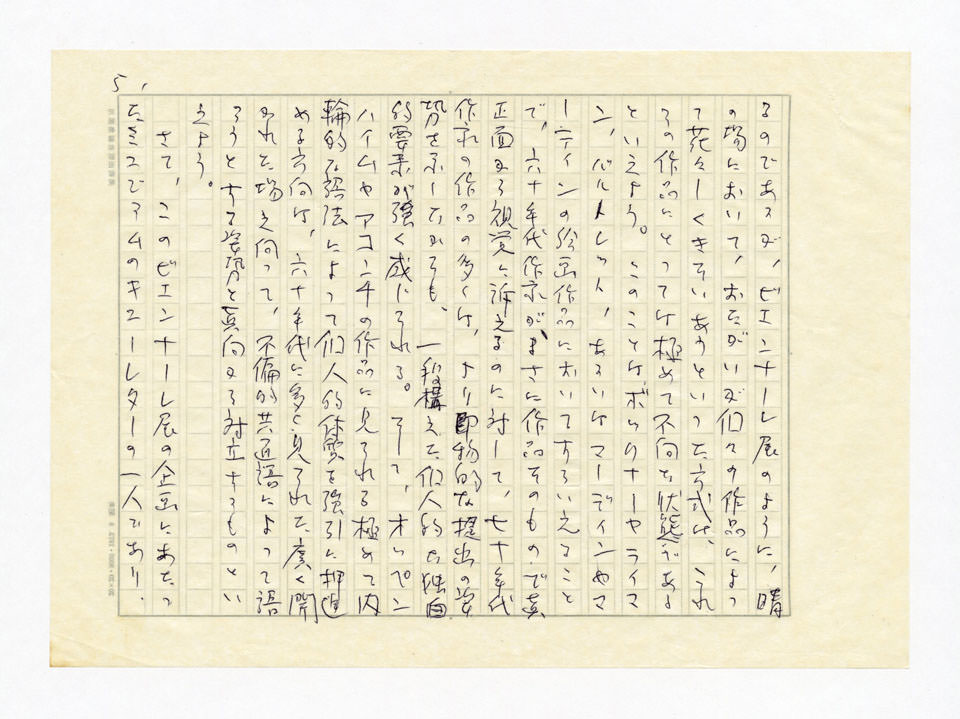 5.
るのであるが、ビエンナーレ展のように、晴
の場において、おたがいが個々の作品によっ
て花々しくきそいあうといった方式は、これ
らの作品にとっては極めて不向な状態である
といえよう。このことはボックナーやライマ
ン、バルトレット、あるいはマーディンやマ
ーティンの絵画作品においてすらいえること
で、六十年代作家がまさに作品そのもので真
正面から視覚に訴えるのに対して、七十年代
作家の作品の多くは、より即物的な提出の姿
勢を示しながらも、一段構えた個人的な独自
的要素が強く感じられる。そして、オッペン
ハイムやアコンチの作品に見られる極めて内
輪的な語法によって個人的体質を強引に押進
める方向は、六十年代に多く見られた広く開
かれた場に向って、不偏的共通語によって語
ろうとする姿勢と真向から対立するものとい
えよう。
さて、このビエンナーレ展の企画にあたっ
たきエでアムのキューレターの一人であり、